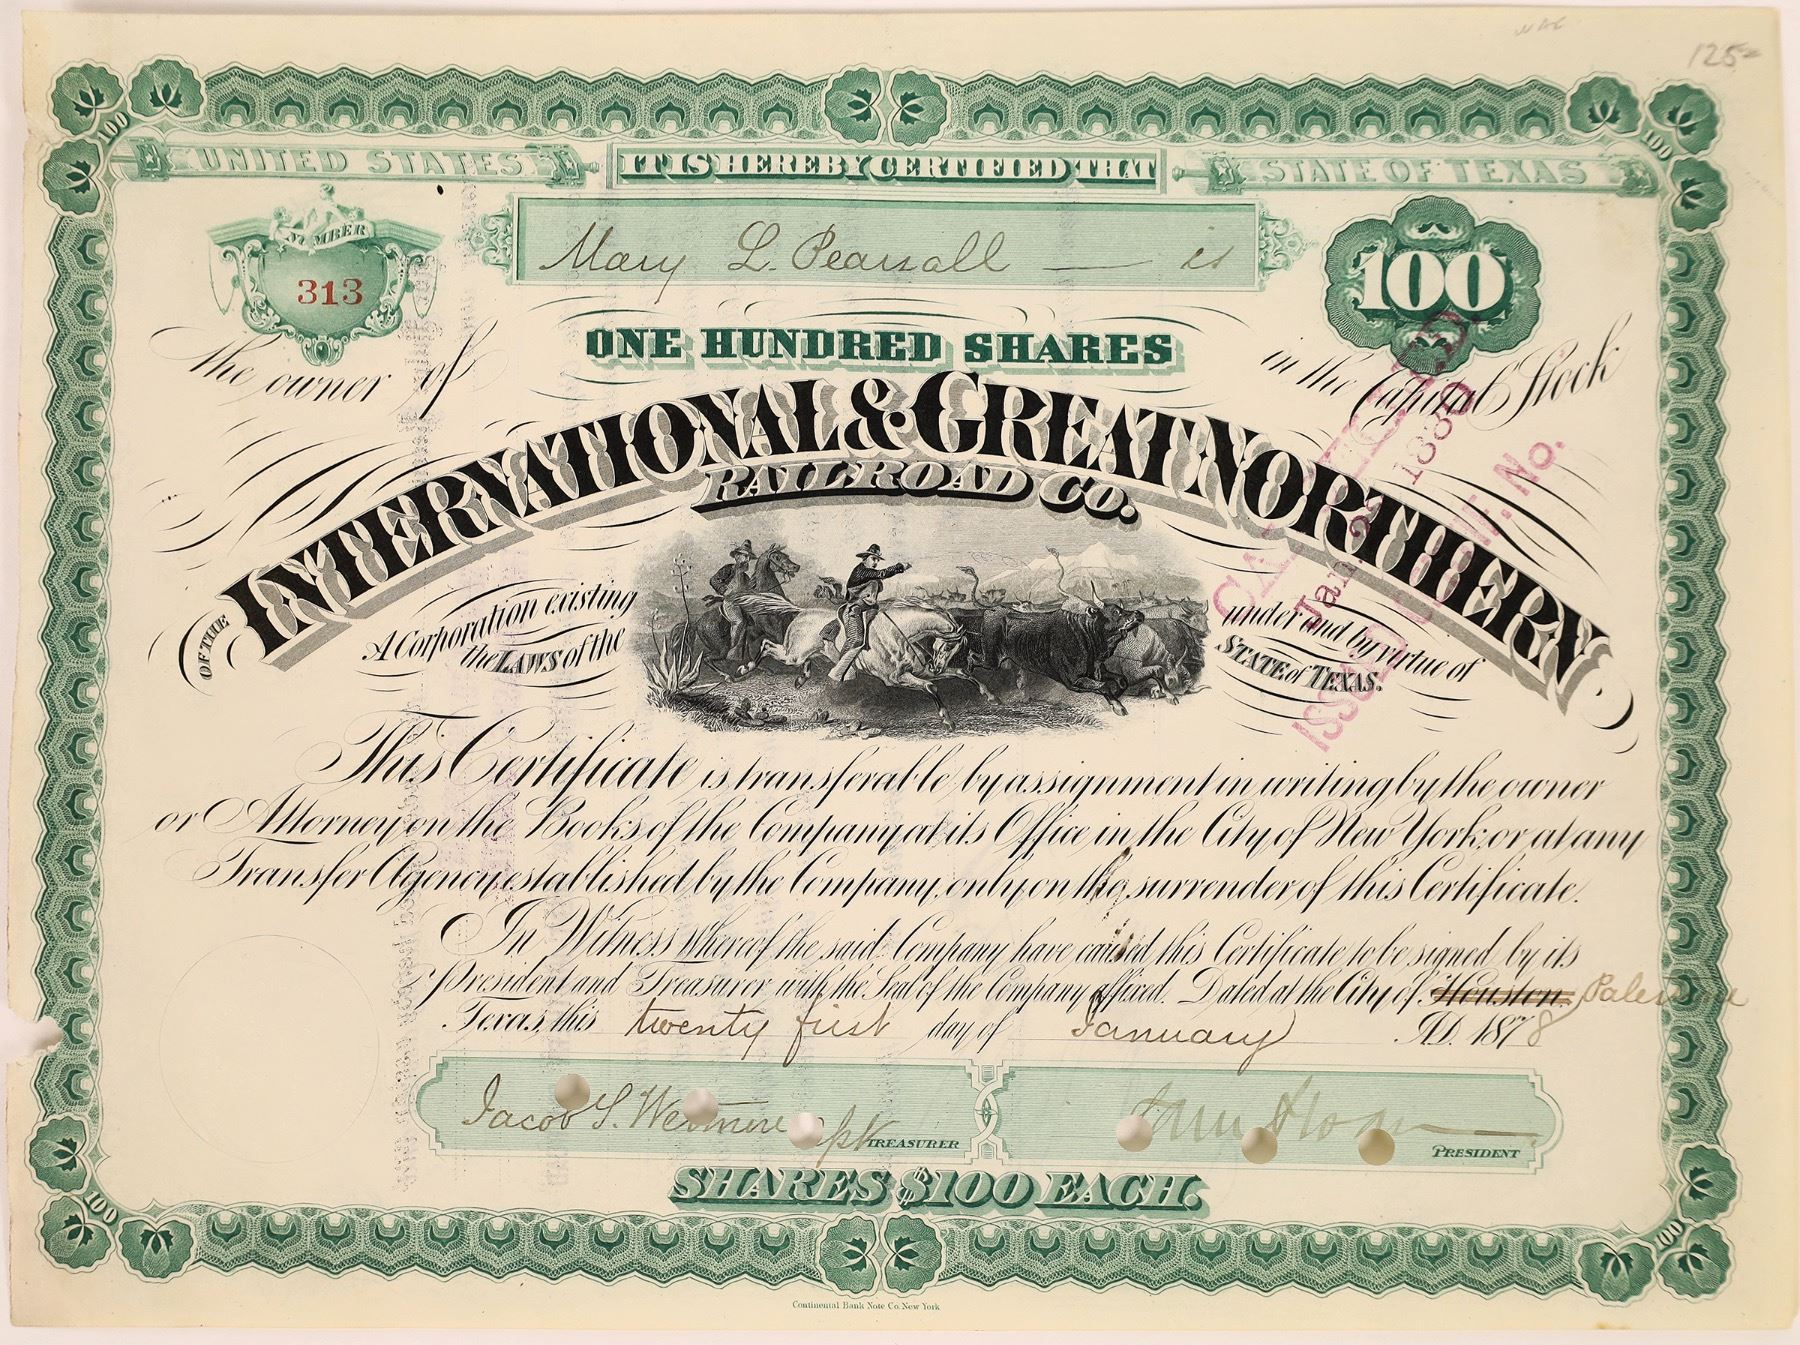 125=
100
100
UNITED STATES.
IT IS HEREBY CERTIFIED THAT
STATE OF TEXAS
NUMBER
313
Mary L. Pearsall — is
100
the owner of
ONE HUNDRED SHARES
in the Capital Stock
OF THE
INTERNATIONAL & GREAT NORTHERN
RAILROAD CO.
A Corporation existing
the LAWS of the
under and by virtue of
STATE of TEXAS.
CANCELLED
Jan. 1880
ISSUED NEW. No.
This Certificate is transferable by assignment in writing by the owner
or Attorney on the Books of the Company at its Office in the City of New York, or at any
Transfer Agency established by the Company, only on the surrender of this Certificate.
In Witness whereof the said Company have caused this Certificate to be signed by its
President and Treasurer with the Seal of the Company affixed. Dated at the City of Houston, Palestine
Texas, this twenty first day of January A.D. 1878
Jacob S. Wetmore
TREASURER
Sam Sloan
PRESIDENT
SHARES $100 EACH.
100
100
Continental Bank Note Co. New York